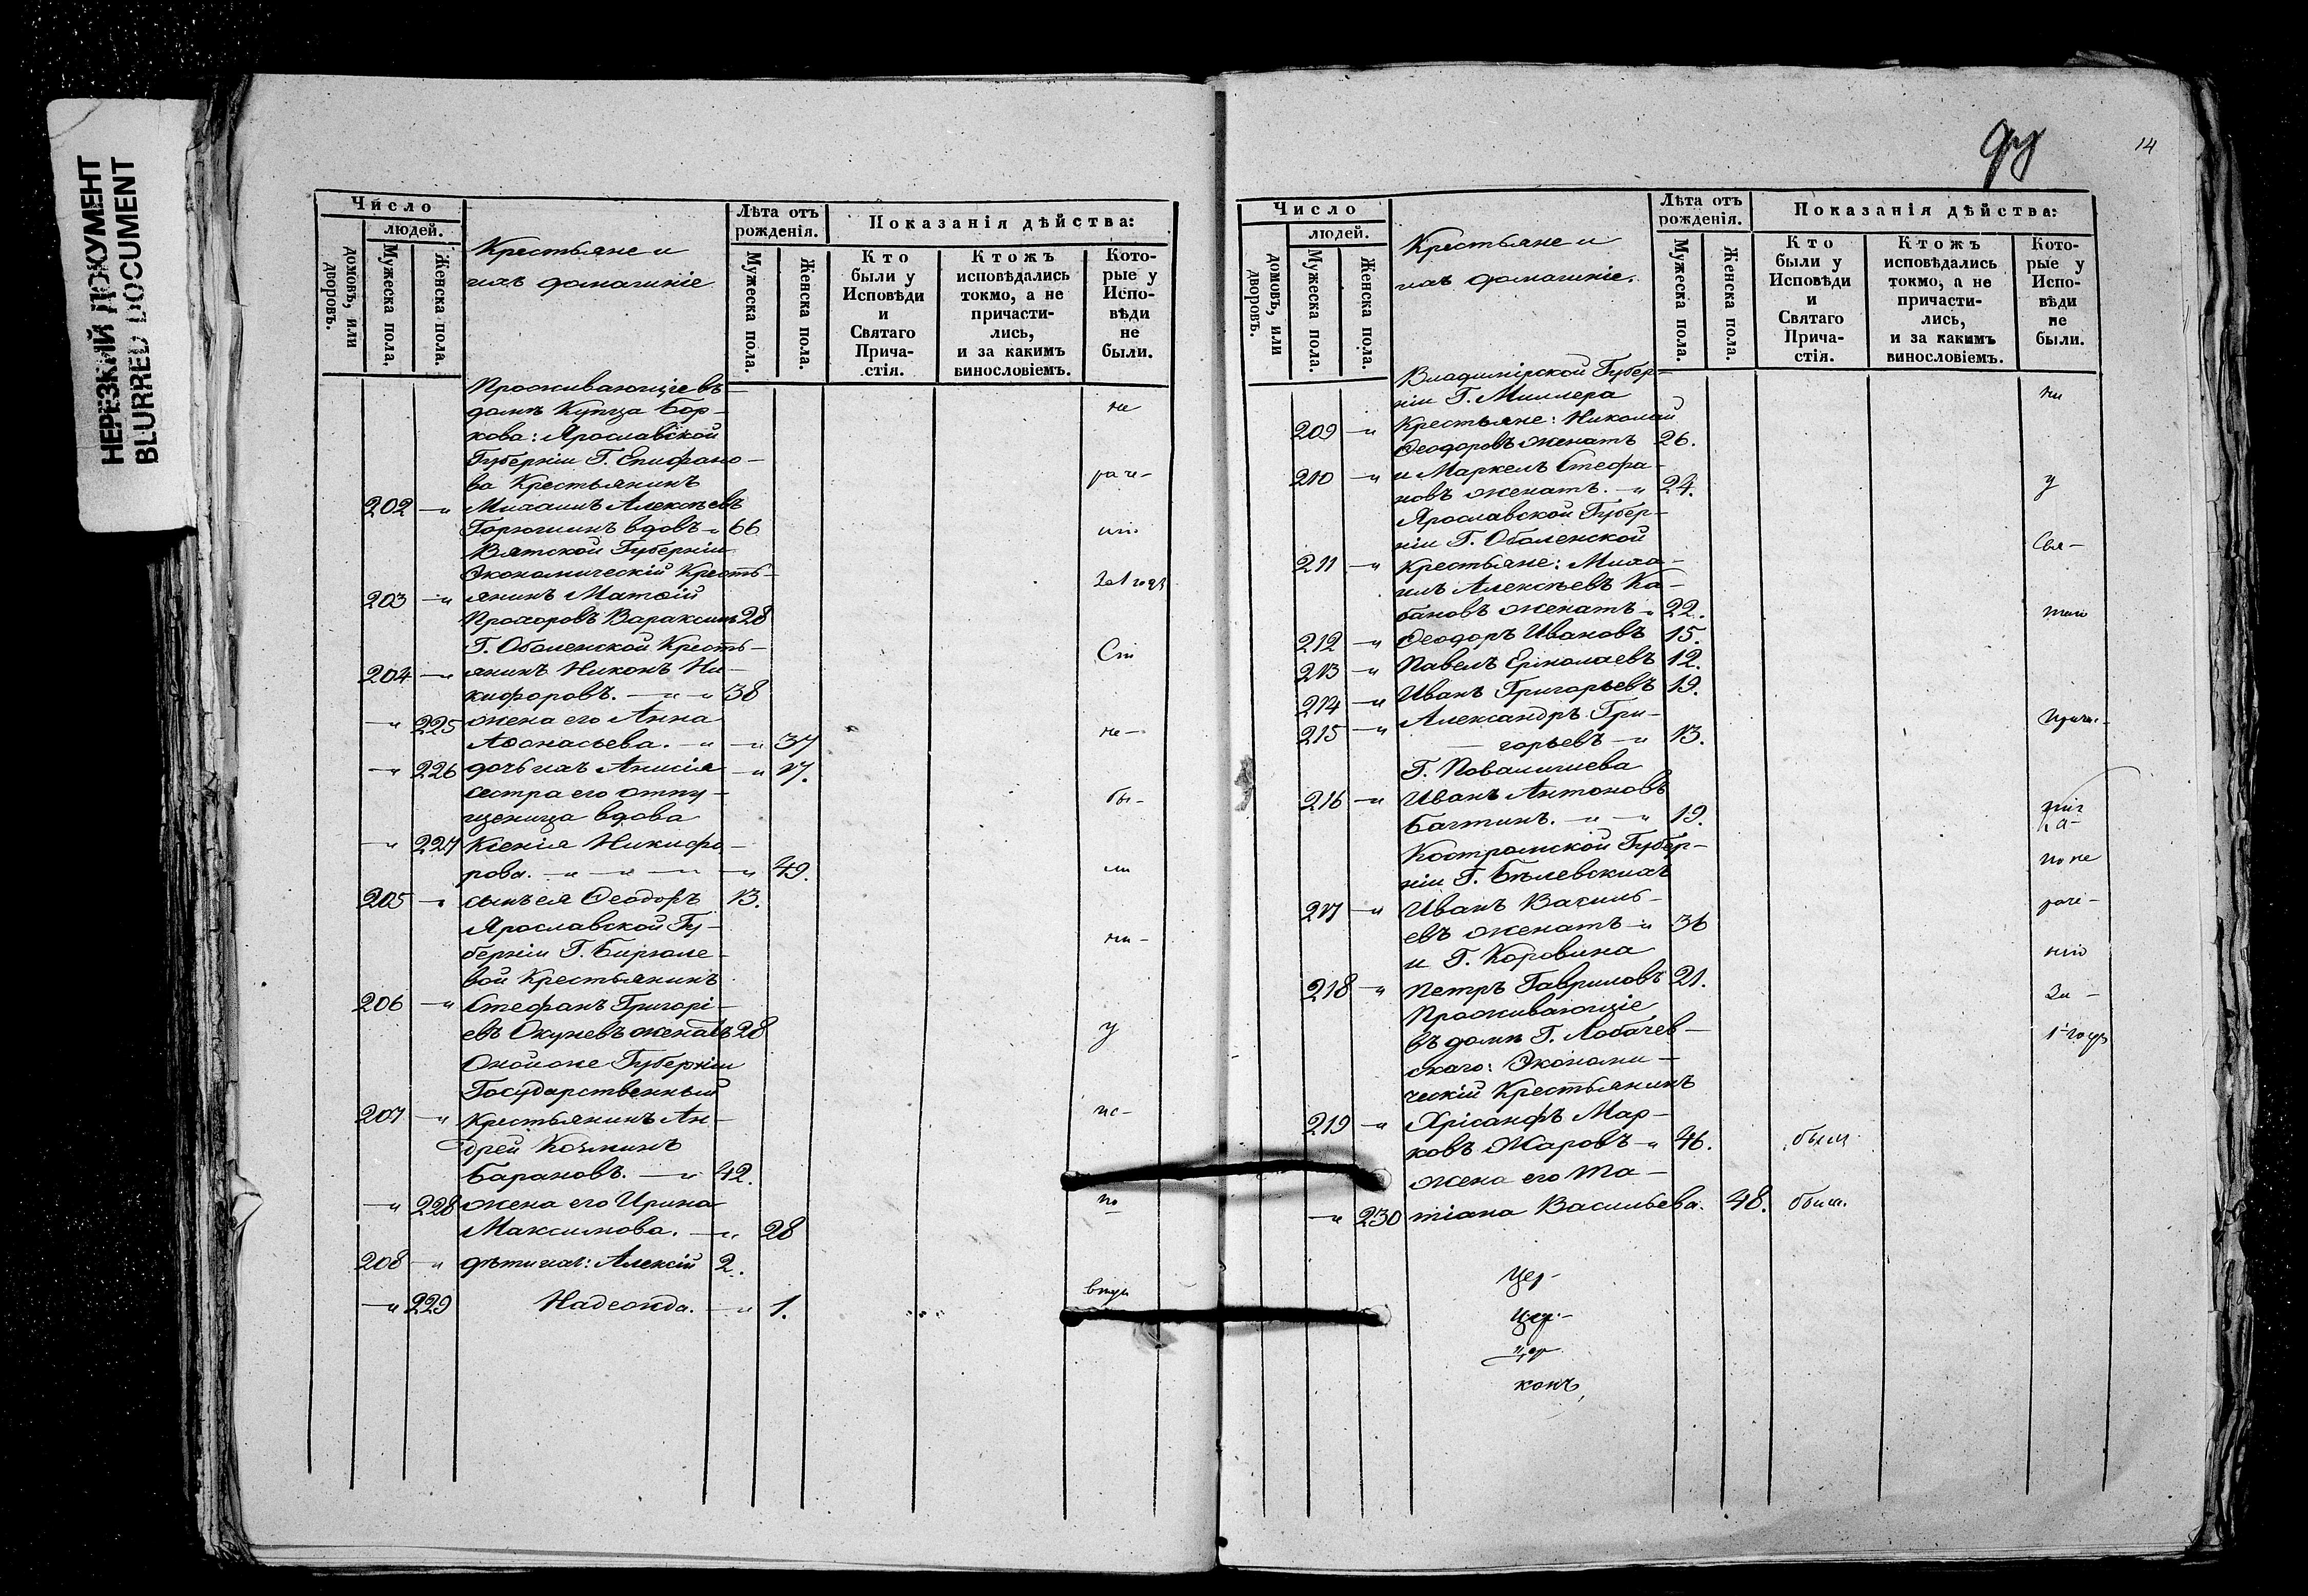 НЕРЕЗКИЙ ДОКУМЕНТ
BLURRED DOCUMENT
Число
людей.
домовъ, или дворовъ.
Мужеска пола.
Женска пола.
Крестьяне и
ихъ домашніе
Лѣта отъ рожденія.
Мужеска пола.
Женска пола.
Показанія дѣйства:
Кто были у Исповѣди и Святаго Прича-стія.
Ктожъ исповѣдались токмо, а не причасти-лись, и за какимъ винословіемъ.
Кото-рые у Испо-вѣди не были.
Проживающіе въ
домѣ Купца Бор-
кова: Ярославской
Губерніи Г. Епифано-
ва Крестьянинъ
202 -" Михаилъ Алексѣевъ
Горюшинъ вдовъ -" 66
Вятской Губерніи
Экономическій Кресть-
203 -" янинъ Матѳій
Прохоровъ Вараксинъ 28
Г. Оболенской Кресть-
204 -" янинъ Никонъ Ни-
кифоровъ. -" -" 38
-" 225 жена его Анна
Аѳонасьева. -" -" 37
-" 226 дочь ихъ Анисія -" 17.
сестра его отпу-
щеница вдова
-" 227 Ксенія Никифо-
рова. -" -" -" -" 49.
205 -" сынъ ея Ѳеодоръ 13.
Ярославской Гу-
берніи Г. Бирюле-
вой Крестьянинъ
206 -" Стефанъ Григорі-
евъ Окуневъ женатъ 28
Оной же Губерніи
Государственный
207 -" Крестьянинъ Ан-
дрей Козминъ
Барановъ. -" 42.
-" 228 жена его Ирина
Максимова. -" 28
208 -" дѣти ихъ: Алексій 2.
-" 229 Надежда. -" 1.
не
раче-
нію
За 1 годъ
Сіи
не-
бы-
ли
ни-
у
ис-
по
вѣди
14
Число
людей.
домовъ, или дворовъ.
Мужеска пола.
Женска пола.
Крестьяне и
ихъ домашніе.
Лѣта отъ рожденія.
Мужеска пола.
Женска пола.
Показанія дѣйства:
Кто были у Исповѣди и Святаго Прича-стія.
Ктожъ исповѣдались токмо, а не причасти-лись, и за какимъ винословіемъ.
Кото-рые у Испо-вѣди не были.
Владимірской Губер-
ніи Г. Миллера
209 -" Крестьяне: Николай
Ѳеодоровъ женатъ 26.
210 -" и Маркелъ Стефа-
новъ женатъ. -" 24.
Ярославской Губер-
ніи Г. Оболенской
211 -" Крестьяне: Миха-
илъ Алексѣевъ Ка-
бановъ женатъ -" 22.
212 -" Ѳеодоръ Ивановъ 15.
213 -" Павелъ Ермолаевъ 12.
214 -" Иванъ Григорьевъ 19.
215 -" Александръ Гри-
горьевъ -" 13.
Г. Повалишиева
216 -" Иванъ Антоновъ
Бачтинъ. -" -" 19.
Костромской Губер-
ніи Г. Бѣлевскихъ
217 -" Иванъ Василь-
евъ женатъ -" 36
и Г. Коровина
218 -" Петръ Гавриловъ 21.
Проживающіе
въ домѣ Г. Лобачев-
скаго: Экономи-
ческій Крестьянинъ
219 -" Хрісанфъ Мар-
ковъ Жаровъ -" 46. былъ
жена его Та-
-" 230 тіана Васильева. 48. была.
ни
у
Свя-
таго
Прича-
по не
раче-
нію
За
1 годъ
Цер-
Цер-
кокъ